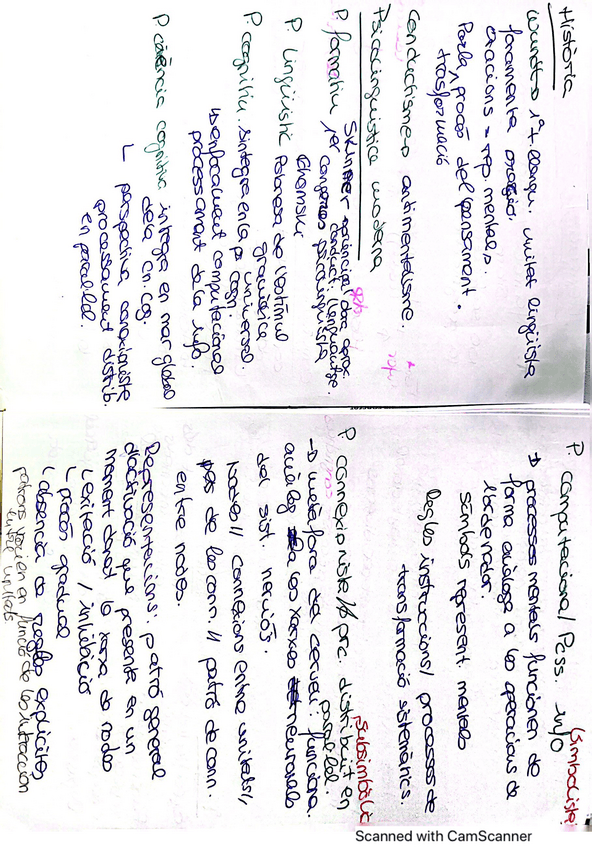 Història
Wundt → 1r llengu. unitat lingüíst
fonamental oració,
oracions = rep. mentals.
Parla procés del pensament.
trasformació
Conductisme → antimentalisme.
Psicolingüística moderna
P. formatiu Skinner principal aprox.
conduct. llenguatge.
1er congrés psicolingüista
P. Lingüístic Pobresa de l'estímul
Chomsky gramàtica
universal.
P. cognitiu. s'integra en la ps cogn.
↳ enfocament computacional
processament de la info.
P ciència cognitiva integra en mar global
de la cn. cog.
↳ perspectiva conexioniste
processament distrib.
en paral·lel.
P. computacional / Pcss. info (simbolista)
→ processos mentals funcionen de
forma anàloga a les operacions de
l'ordenador.
símbols represent. mentals
Regles instruccions / processos de
transformació sistemàtics.
P. connexioniste / prc. distribuit en
paral·lel. subsimbòlic
→ metàfora del cervell: funciona.
anàleg a les xarxes neuronals
del sist. nerviós.
Nodes // connexions entre unitats /,
pes de les conn. // patró de conn.
entre nodes.
Representacions: patró general
d'activació que presente en un
moment donat la xarxa de nodes
↳ exitació / inhibició
↳ procés gradual
↳ absència de regles explicites,
patrons varien en funció de la interaccion
entre unitats
Scanned with CamScanner